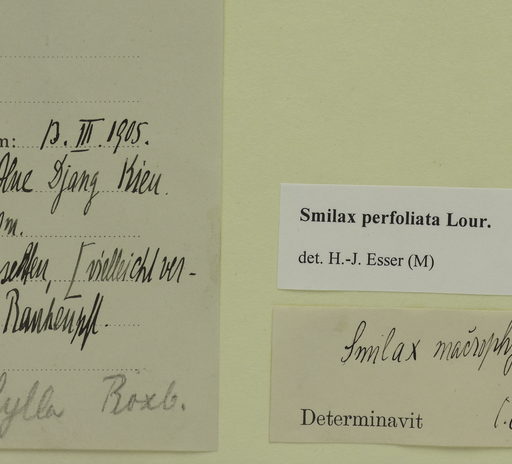 n: 13. III. 1905.
Djang Kien.
m.
selten, [vielleicht ver-
Rankenpfl.
ylla Roxb.
Smilax perfoliata Lour.
det. H.-J. Esser (M)
Smilax macrophy
Determinavit